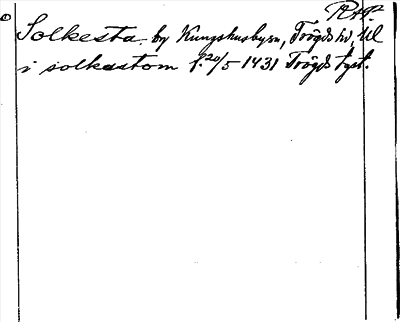 RAP.
Solkesta. by Kungshusbysn, Trögds hd, Ul
i solkastom f. 20/5 1431 Trögds tgst.